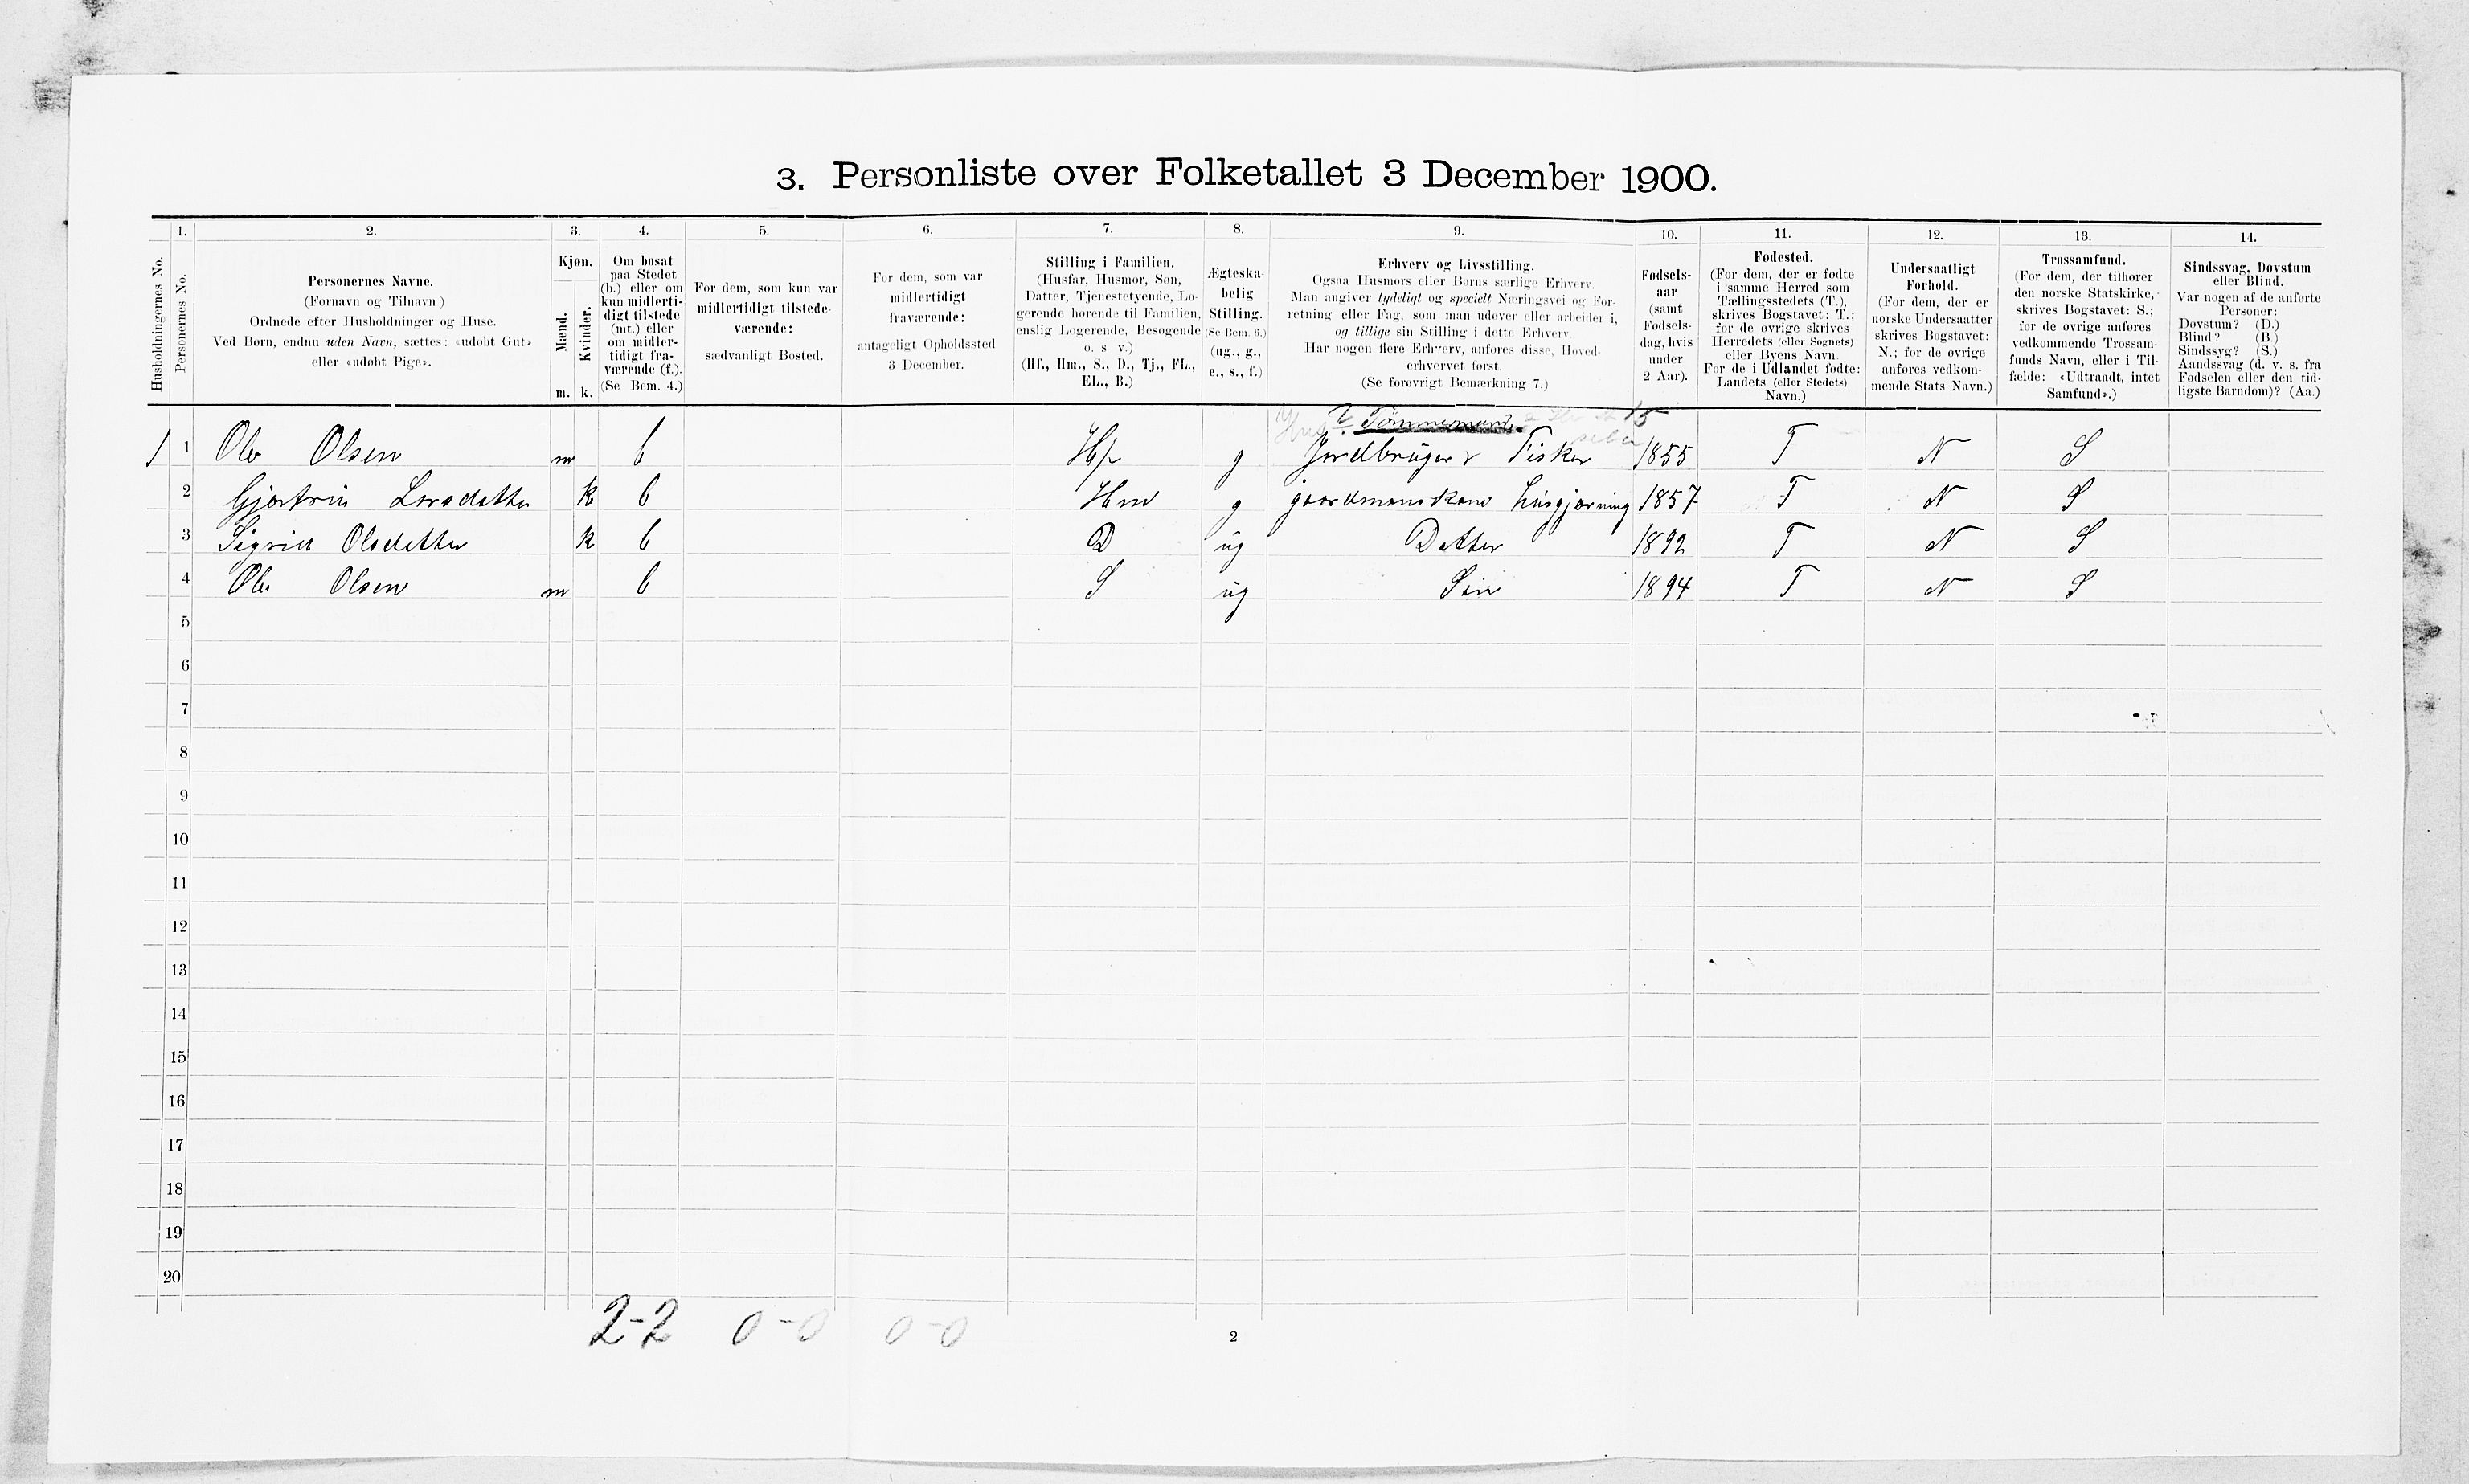 3. Personliste over Folketallet 3 December 1900.
Husholdningernes No.
1.
Personernes No.
2.
Personernes Navne.
(Fornavn og Tilnavn)
Ordnede efter Husholdninger og Huse.
Ved Børn, endnu uden Navn, sættes: «udøbt Gut»
eller «udøbt Pige».
3.
Kjøn.
Mænd.
Kvinder.
m.
k.
4.
Om bosat
paa Stedet
(b.) eller om
kun midlerti-
digt tilstede
(mt.) eller
om midler-
tidigt fra-
værende (f.).
(Se Bem. 4.)
5.
For dem, som kun var
midlertidigt tilstede-
værende:
sædvanligt Bosted.
6.
For dem, som var
midlertidigt
fraværende:
antageligt Opholdssted
3 December.
7.
Stilling i Familien.
(Husfar, Husmor, Søn,
Datter, Tjenestetyende, Lo-
gerende hørende til Familien,
enslig Logerende, Besøgende
o. s v.)
(Hf., Hm., S., D., Tj., FL.,
EL., B.)
8.
Ægteska-
belig
Stilling.
(Se Bem. 6.)
(ug., g.,
e., s., f.)
9.
Erhverv og Livsstilling.
Ogsaa Husmors eller Børns særlige Erhverv.
Man angiver tydeligt og specielt Næringsvei og For-
retning eller Fag, som man udøver eller arbeider i,
og tillige sin Stilling i dette Erhverv.
Har nogen flere Erhverv, anføres disse, Hoved-
erhvervet først.
(Se forøvrigt Bemærkning 7.)
10.
Fødsels-
aar
(samt
Fødsels-
dag, hvis
under
2 Aar).
11.
Fødested.
(For dem, der er fødte
i samme Herred som
Tællingsstedets (T.),
skrives Bogstavet: T.;
for de øvrige skrives
Herredets (eller Sognets)
eller Byens Navn.
For de i Udlandet fødte:
Landets (eller Stedets)
Navn.)
12.
Undersaatligt
Forhold.
(For dem, der er
norske Undersaatter
skrives Bogstavet:
N.; for de øvrige
anføres vedkom-
mende Stats Navn.)
13.
Trossamfund.
(For dem, der tilhører
den norske Statskirke,
skrives Bogstavet: S.;
for de øvrige anføres
vedkommende Trossam-
funds Navn, eller i Til-
fælde: «Udtraadt, intet
Samfund».)
14.
Sindssvag, Døvstum
eller Blind.
Var nogen af de anførte
Personer:
Døvstum? (D.)
Blind? (B.)
Sindssyg? (S.)
Aandssvag (d. v. s. fra
Fødselen eller den tid-
ligste Barndom)? (Aa.)
15
1 1 Ole Olsen m b Hf g Jordbruger & Fisker 1855 T N S
2 Gjertrin Larsdatter k b Hm g gaardmanskone husgjærning 1857 T N S
3 Sigrid Olsdatter k b D ug Datter 1892 T N S
4 Ole Olsen m b S ug Søn 1894 T N S
5
6
7
8
9
10
11
12
13
14
15
16
17
18
19
20
2-2 0-0 0-0
2